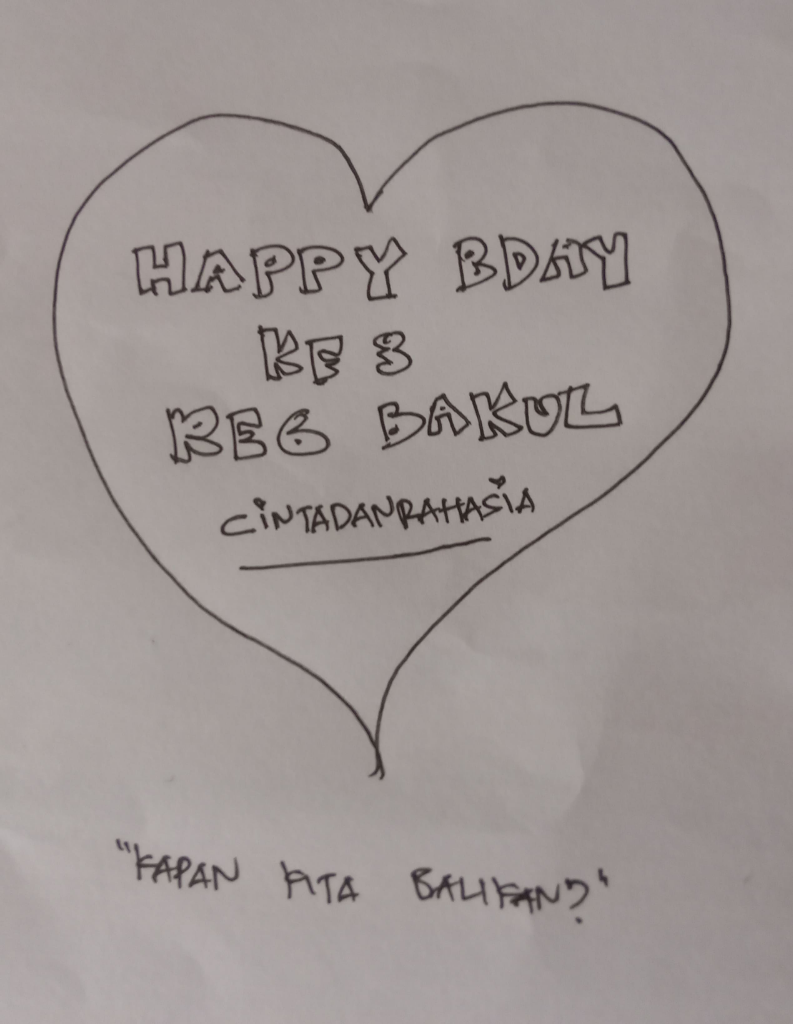 HAPPY BDAY
KE 3
REG BAKUL
CINTADANRAHASIA
"KAPAN KITA BALIKAN?"